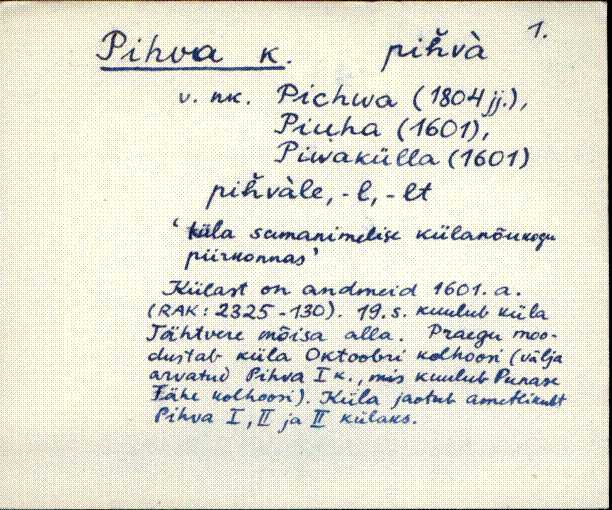 1.
Pihva k. pih̆và
v. nk. Pichwa (1804 jj.),
Piuha (1601),
Piwakülla (1601)
pih̆vàle, -l, -lt
' küla samanimelise külanõukogu
piirkonnas'
Külast on andmeid 1601. a.
(RAK: 2325-130). 19. s. kuulub küla
Tähtvere mõisa alla. Praegu moo-
dustab küla Oktoobri kolhoosi (välja
arvatud Pihva I k., mis kuulub Punase
Tähe kolhoosi). Küla jaotub ametlikult
Pihva I, II ja II külaks.